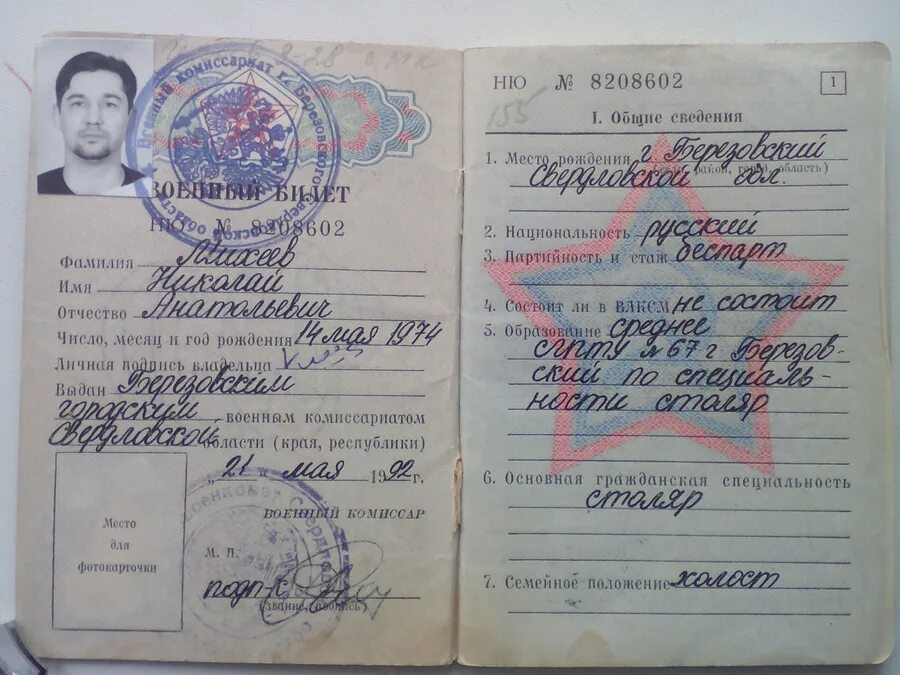 Военный комиссариат г. Березовского Свердловской области
ВОЕННЫЙ БИЛЕТ
НЮ № 8208602
Фамилия Михеев
Имя Николай
Отчество Анатольевич
Число, месяц и год рождения 14 мая 1974
Личная подпись владельца
Выдан Березовским
городским военным комиссариатом
Свердловской области (края, республики)
„21 “ мая 1992 г.
ВОЕННЫЙ КОМИССАР
Место
для
фотокарточки
М. П.
подп-к
(звание, подпись)
НЮ № 8208602
1
155
I. Общие сведения
1. Место рождения г. Березовский
(село, район, город, область)
Свердловской обл.
2. Национальность русский
3. Партийность и стаж беспарт
4. Состоит ли в ВЛКСМ не состоит
5. Образование среднее
СПТУ № 67 г Березов-
ский по специаль-
ности столяр
6. Основная гражданская специальность
столяр
7. Семейное положение холост